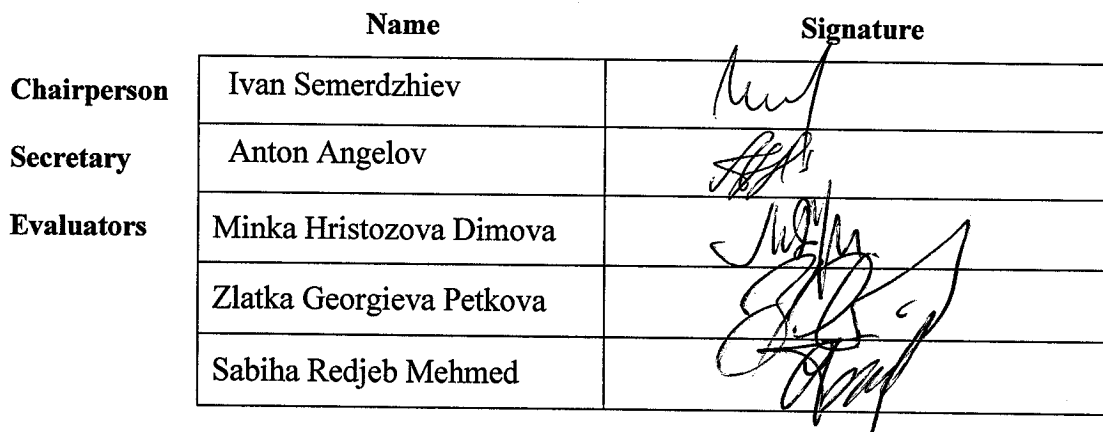 Name Signature
Chairperson Ivan Semerdzhiev
Secretary Anton Angelov
Evaluators Minka Hristozova Dimova
Zlatka Georgieva Petkova
Sabiha Redjeb Mehmed